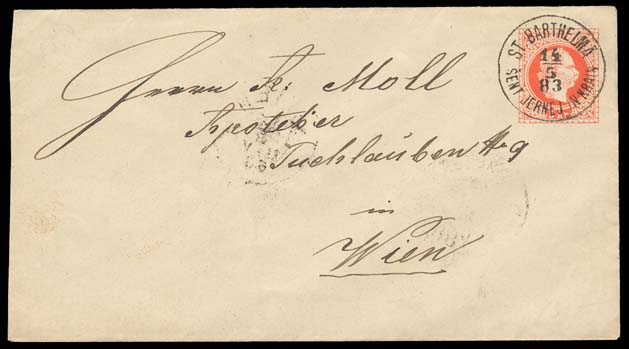 ST. BARTHELMÄ
14
5
83
SENT JERNEJ IN KRAIN
Herrn Fr. Moll
Apotheker
Tuchlauben No 9
in
Wien